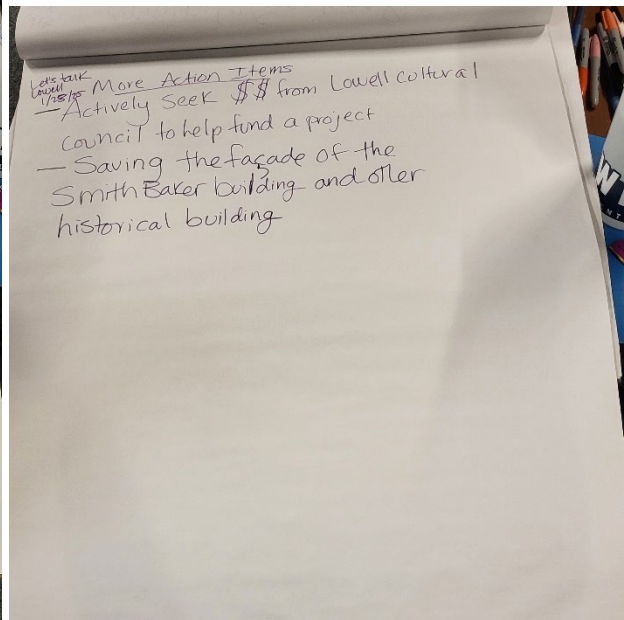 Let's talk
Lowell
1/28/25
More Action Items
— Actively Seek $$ from Lowell Cultural
Council to help fund a project
— Saving the façade of the
Smith Baker building and other
historical building
W
NT